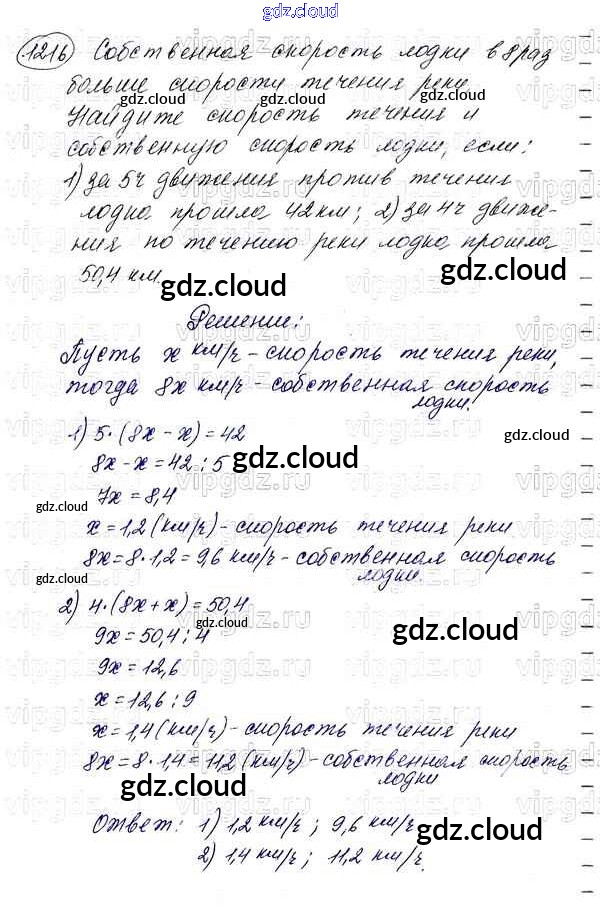 gdz.cloud
1216 Собственная скорость лодки в 8 раз
больше скорости течения реки.
gdz.cloud gdz.cloud gdz.cloud
Найдите скорость течения и
собственную скорость лодки, если:
1) за 5ч движения против течения
лодка прошла 42 км; 2) за 4ч движе-
ния по течению реки лодка прошла
50,4 км.
gdz.cloud gdz.cloud
Решение:
Пусть x км/ч - скорость течения реки,
тогда 8x км/ч - собственная скорость
лодки.
gdz.cloud
1) 5·(8x-x)=42
8x-x=42:5
gdz.cloud
7x=8,4
gdz.cloud
x=1,2(км/ч)-скорость течения реки
8x=8·1,2=9,6 км/ч-собственная скорость
лодки.
gdz.cloud
2) 4·(8x+x)=50,4
gdz.cloud
9x=50,4:4
gdz.cloud
9x=12,6
x=12,6:9
x=1,4(км/ч)-скорость течения реки
8x=8·1,4=11,2(км/ч)-собственная скорость
лодки
gdz.cloud
Ответ: 1) 1,2 км/ч; 9,6 км/ч
gdz.cloud
2) 1,4 км/ч; 11,2 км/ч.